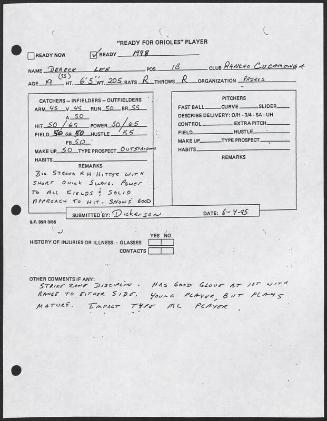 "READY FOR ORIOLES" PLAYER
READY NOW ✓ READY 1998
NAME DEREK LEE POS 1B CLUB RANCHO CUCAMONGA
AGE A (SS) HT 6'5" WT 205 BATS R THROWS R ORGANIZATION PADRES
CATCHERS - INFIELDERS - OUTFIELDERS
ARM 45 V 45 RUN 50 ER 55
A 50
HIT 50/65 POWER 50/65
FIELD 50 GR 50 HUSTLE 55
FB 50
MAKE UP 50 TYPE PROSPECT OUTSTANDING
HABITS
REMARKS
BIG STRONG RH HITTER WITH
SHORT QUICK SWING. POWER
TO ALL FIELDS & SOLID
APPROACH TO HIT. SHOWS GOOD
PITCHERS
FAST BALL CURVE SLIDER
DESCRIBE DELIVERY: O/H - 3/4 - SA - UH
CONTROL EXTRA PITCH
FIELD HUSTLE
MAKE UP TYPE PROSPECT
HABITS
REMARKS
SUBMITTED BY: Dickerson DATE: 6-4-95
HISTORY OF INJURIES OR ILLNESS - GLASSES YES NO
CONTACTS
OTHER COMMENTS IF ANY:
STRIKE ZONE DISCIPLIN. HAS GOOD GLOVE AT 1ST WITH
RANGE TO EITHER SIDE. YOUNG PLAYER, BUT PLAYS
MATURE. IMPACT TYPE ML PLAYER